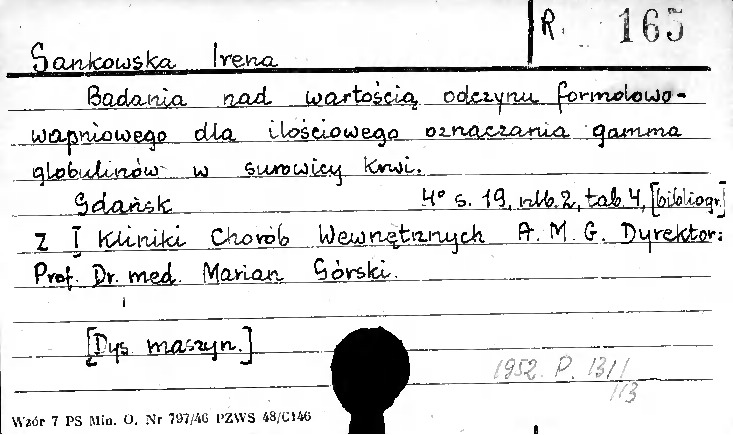 R. 165
Sankowska Irena
Badania nad wartością odczynu formolowo-
wapniowego dla ilościowego oznaczania gamma
globulinów w surowicy krwi.
Gdańsk 4° s. 19, nlb. 2, tab. 4, [bibliogr.]
Z I Kliniki Chorób Wewnętrznych A. M. G. Dyrektor:
Prof. Dr. med. Marian Górski.
[Dys. maszyn.]
1952. P. 1311
113
Wzór 7 PS Min. O. Nr 797/46 PZWS 48/C146